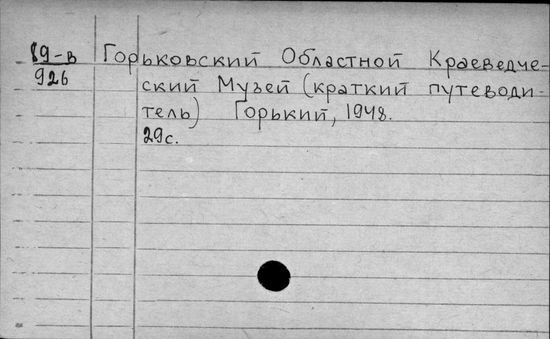 19-в Горьковский Областной Краеведче-
926 ский Музей (краткий путеводи-
тель) Горький, 1948.
29с.